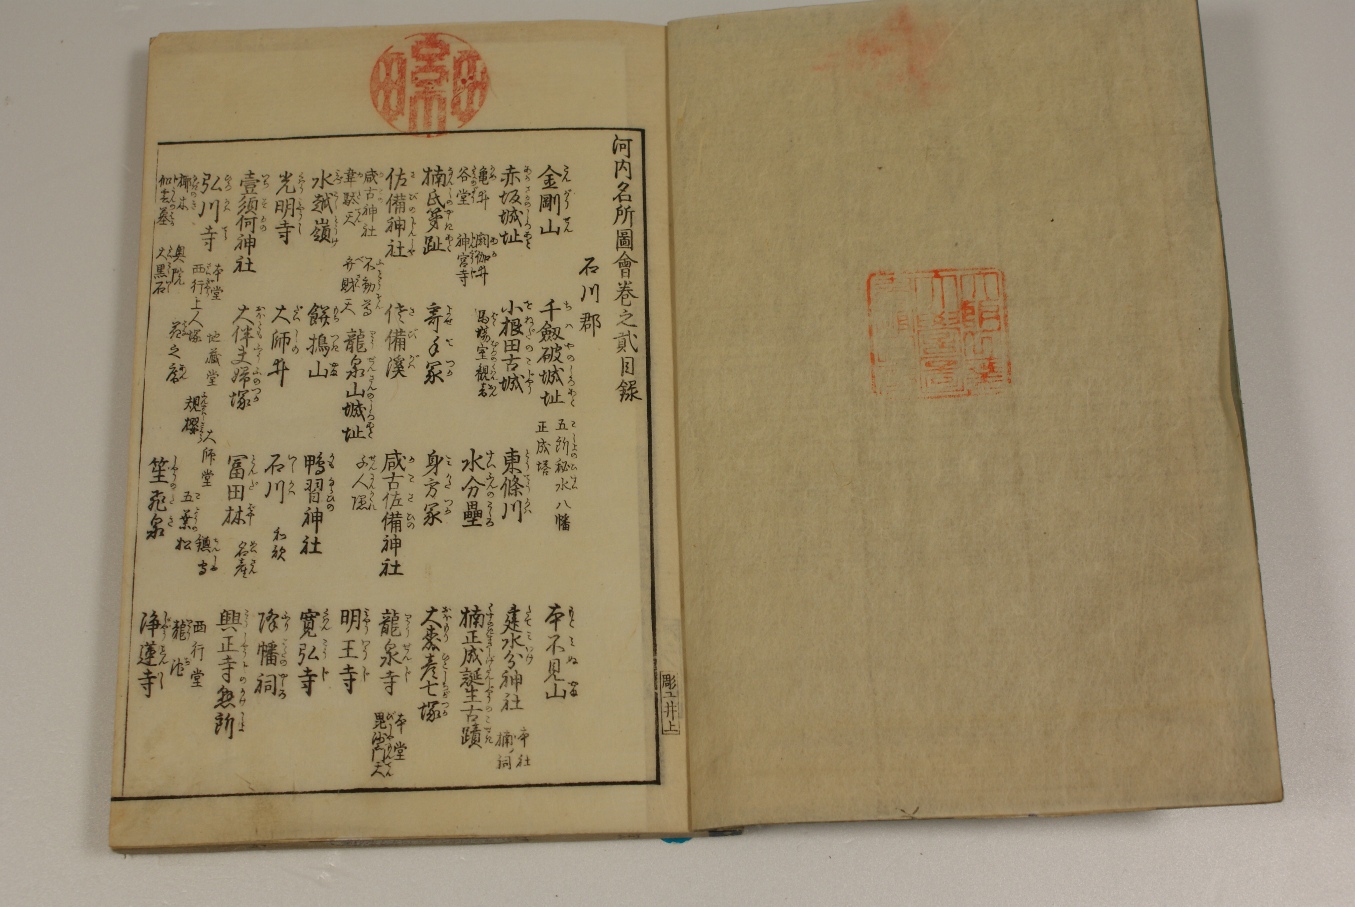 河内名所圖會巻之貳目録
石川郡
金剛山 千劔破城址 五所秘水 八幡 正成塔 本不見山
赤坂城址 小根田古城 東條川 建水分神社 本社 楠祠
亀井 閼伽井 谷堂 神宮寺 馬場室観音 水分壘 楠正成誕生古蹟
楠氏第趾 寄手冢 身方冢 大来彦七塚
佐備神社 佐備溪 咸古佐備神社 龍泉寺 本堂 毘沙門天
咸古神社 不動尊 韋駄天 弁財天 龍泉山城址 千人隠 明王寺
水越嶺 餅搗山 鴨習神社 寛弘寺
光明寺 大師井 石川 和歌 降幡祠
壹須何神社 大伴夫婦塚 冨田林 名産 興正寺懸所
弘川寺 本堂 西行上人塚 地蔵堂 大師堂 鎮守 西行堂
奥院 規櫻 五葉松 龍池
大黒石 笙 泉 浄蓮寺
彫工井上